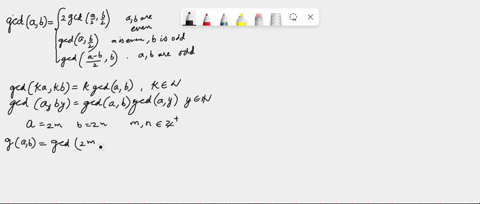 gcd(a,b) = { 2 gcd(a/2, b/2) a,b are even
gcd(a, b/2) a is even, b is odd
gcd((a-b)/2, b) . a,b are odd
gcd(ka,kb) = k gcd(a,b) , k ∈ N
gcd(a, by) = gcd(a,b) gcd(a,y) y ∈ N
a = 2m b = 2n m,n ∈ Z⁺
g(a,b) = gcd(2m,